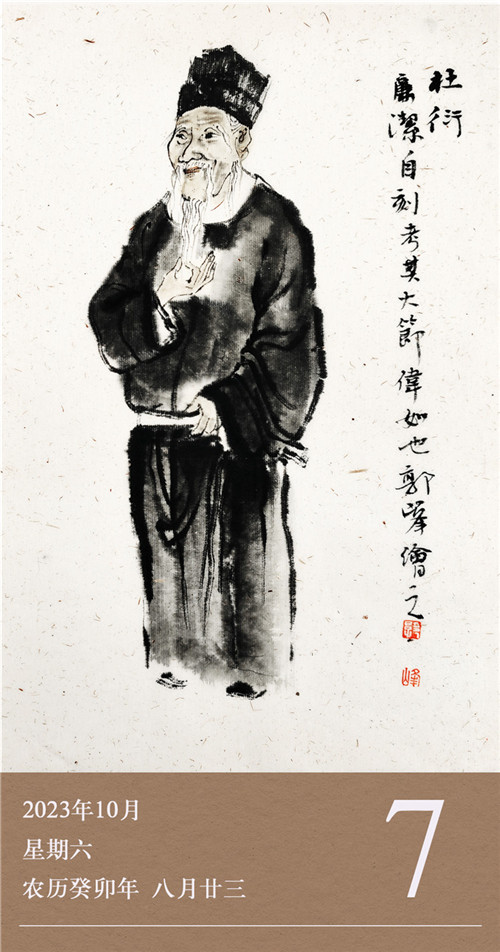 杜衍
廉潔自刻考其大節偉如也郭峰繪之
峰
2023年10月
星期六
农历癸卯年 八月廿三
7